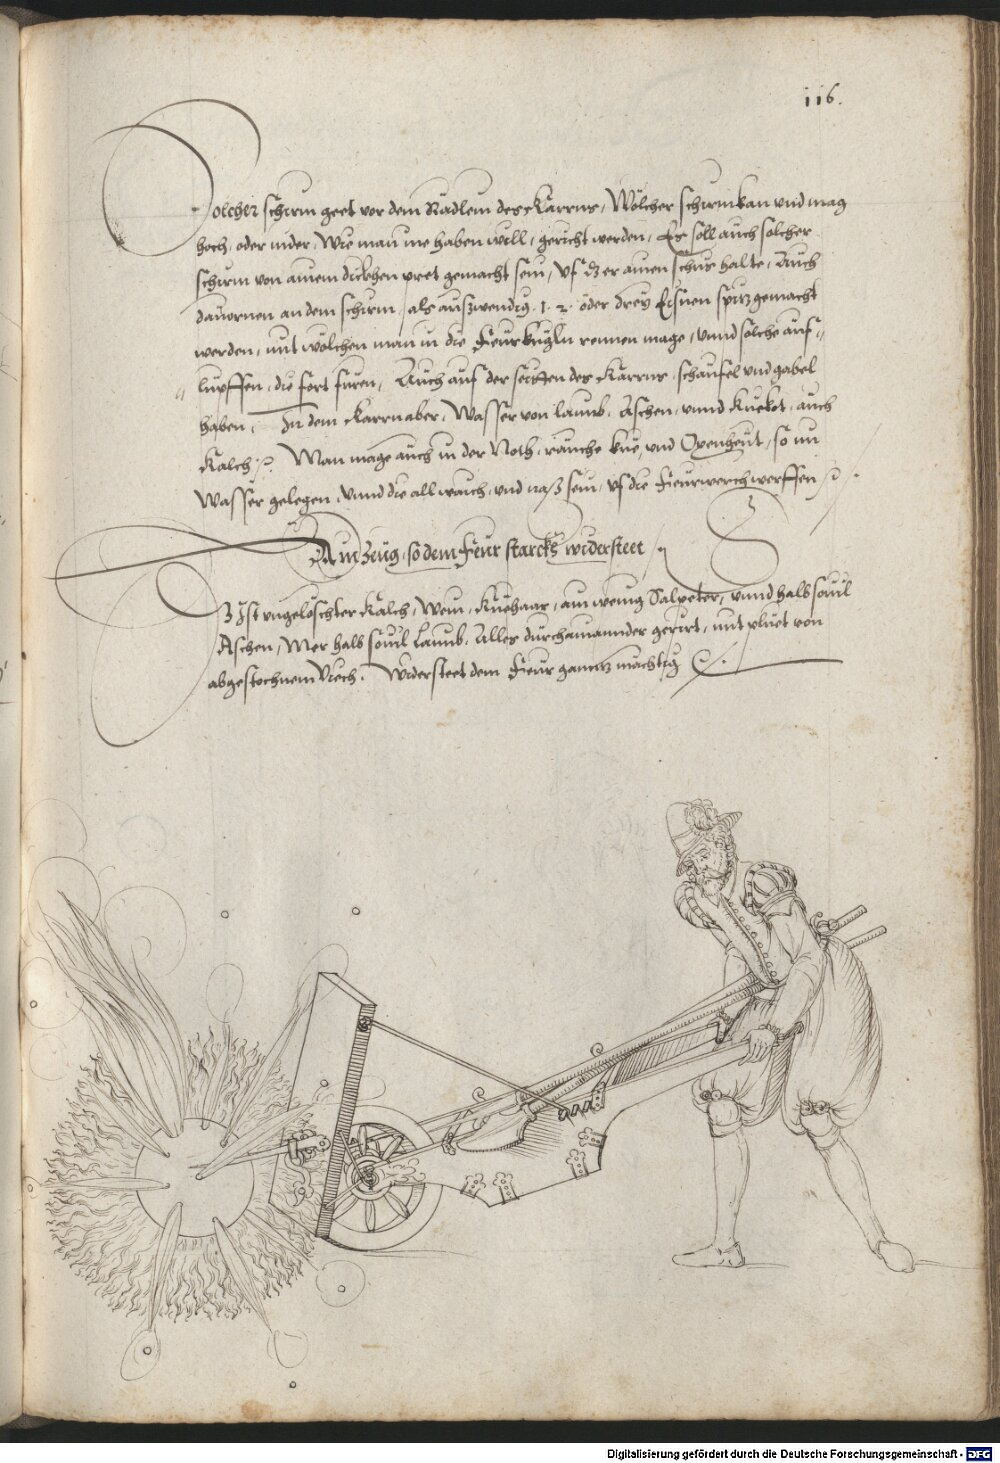 116.
Solcher schirm geet vor dem Rädlein des Karrns, Wölcher schirm kan und mag
hoch, oder nider, Wie man ine haben will, gericht werden, Es soll auch solcher
schirm von ainem dickhen pret gemacht sein, Uf dz er ainen schus halte, Auch
davornen an dem schirm, als auszwendig, 1. 2. oder drey Eisnen spitz gemacht
werden, mit wölchen man in die Feurkugln rennen mage, unnd solche auf-
lupffen, die fort füren, Auch auf der seitten des Karrns, schaufel und gabel
haben, In dem Karrn aber, Wasser von laimb, Aschen, unnd Kuekot, auch
Kalch, Man mage auch in der Noth, rauche kue, und Oxenheut, so im
Wasser gelegen, unnd die all waich, und nasz sein, uf die Feurwerch werffen
Ain Zeug, so dem Feur starckh widersteet
Ist ungelöschter Kalch, Wein, Kuehaar, ain wenig Salpeter, unnd halb sovil
Aschen, Mer halb sovil Laimb, Alles durchainannder gerirt, mit pluet von
abgestochnem Viech, Widersteet dem Feur ganntz mächtig
Digitalisierung gefördert durch die Deutsche Forschungsgemeinschaft - DFG